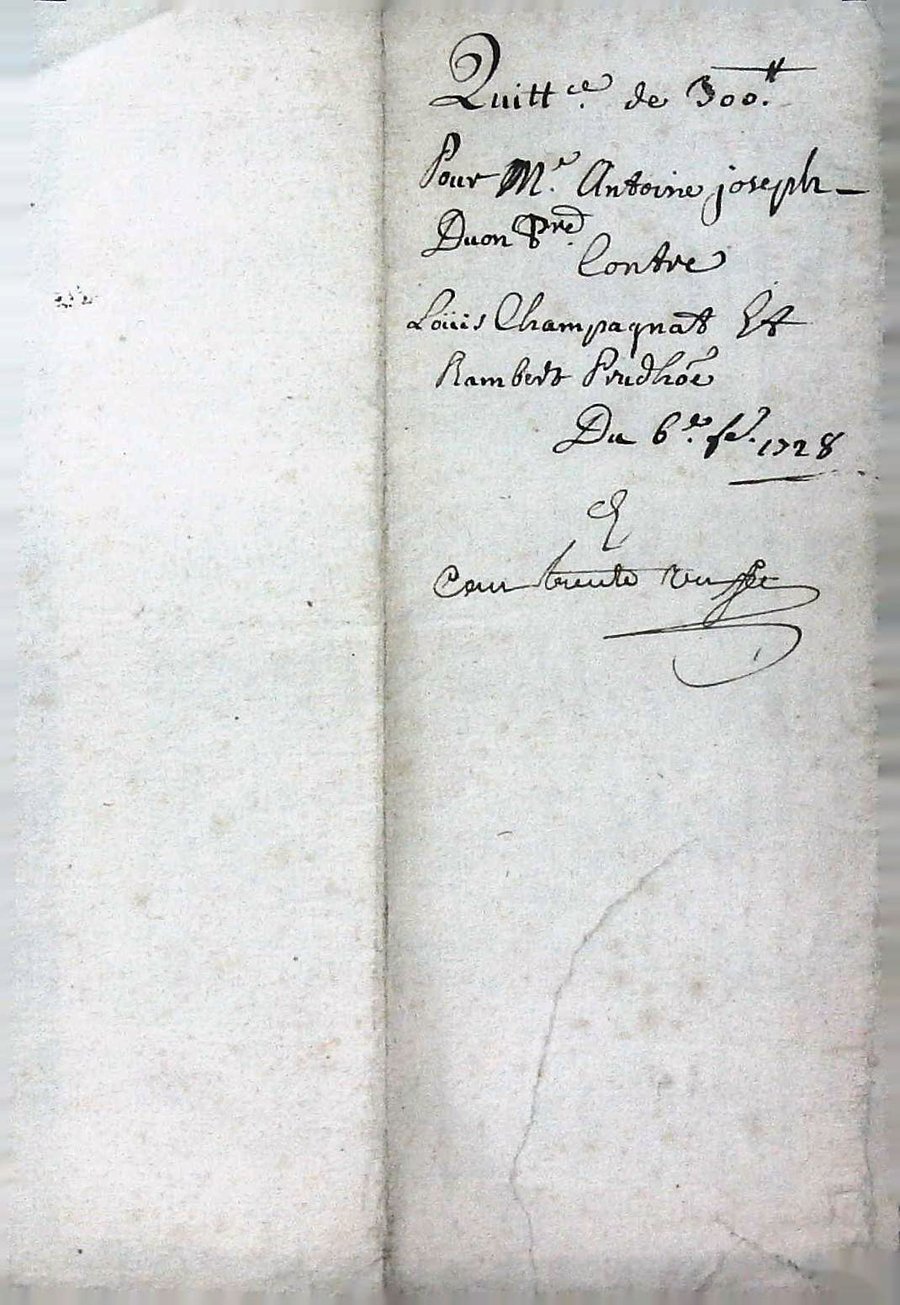 Quitt.ce de 300.#
Pour M.e Antoine joseph
Duon Pre
Contre
Loüis Champagnat Et
Rambert Prudhõe
Du 6.e fe. 1728
Cent trente